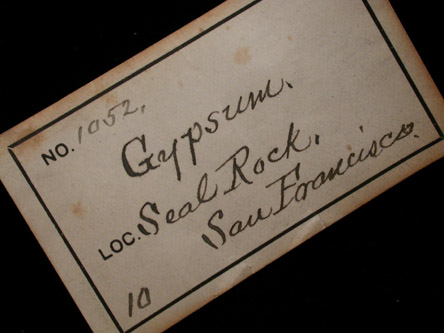 NO. 1052.
Gypsum.
LOC. Seal Rock.
San Francisco.
10